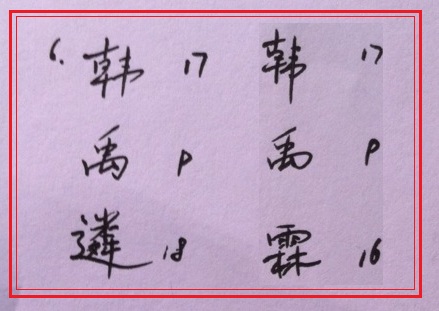 6. 韩 17 韩 17
禹 9 禹 9
遴 18 霖 16